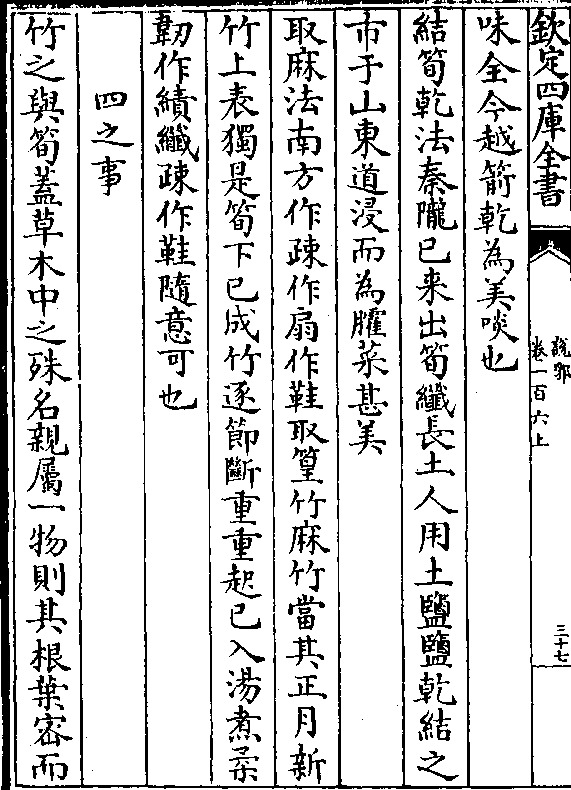 欽定四庫全書
說郛
卷一百六上
三十七
味全今越箭乾為美啖也
結筍乾法秦隴已来出筍纖長土人用土鹽鹽乾結之
市于山東道浸而為臛菜甚美
取麻法南方作疎作扇作鞋取篁竹麻竹當其正月新
竹上表獨是筍下已成竹逐節斷重重起已入湯煮柔
韌作績纖疎作鞋隨意可也
四之事
竹之與筍蓋草木中之殊名親屬一物則其根葉宻而